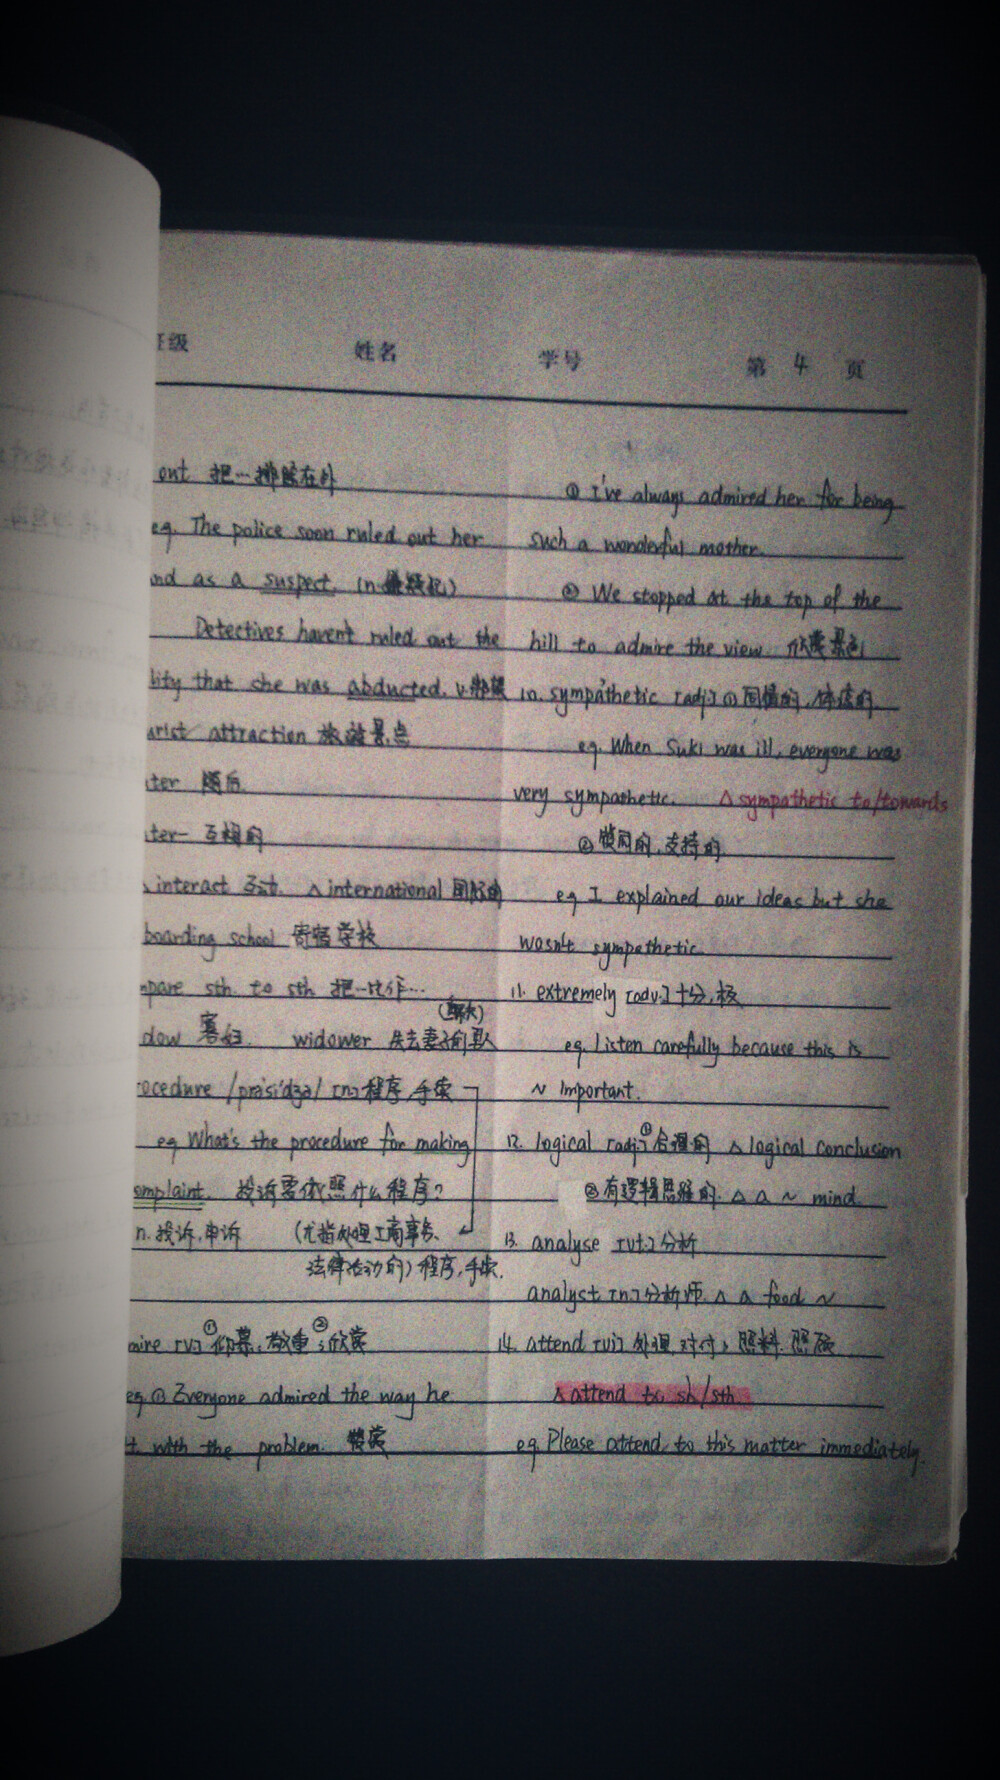 班级 姓名 学号 第 4 页
out 把…排除在外
eg. The police soon ruled out her
and as a suspect. (n.嫌疑犯)
Detectives haven't ruled out the
lity that she was abducted. v.绑架
urist attraction 旅游景点
ter 随后
ter- 互相的
△ interact 互动. △ international 国际的
boarding school 寄宿学校
mpare sth. to sth 把…比作…
dow 寡妇 widower 失去妻子的男人
(鳏夫)
rocedure /prəsi'dʒə/ [n.] 程序,手续
eg. What's the procedure for making
omplaint. 投诉要依照什么程序?
n. 投诉,申诉 (尤指处理工商事务、
法律活动的) 程序,手续.
mire [v.] ①仰慕,敬重; ②欣赏
eg. ① Everyone admired the way he
t with the problem. 赞赏
① I've always admired her for being
such a wonderful mother.
② We stopped at the top of the
hill to admire the view. 欣赏景色
10. sympathetic [adj.] ① 同情的,体谅的.
eg. When Suki was ill, everyone was
very sympathetic. △ sympathetic to/towards
② 赞同的,支持的
eg I explained our ideas but she
wasn't sympathetic.
11. extremely [adv.] 十分,极
eg. Listen carefully because this is
~ important.
12. logical [adj.] ①合理的 △ logical conclusion
② 有逻辑思维的. △ a ~ mind.
13. analyse [vt.] 分析
analyst [n.] 分析师. △ a food ~
14. attend [v.] 处理,对付; 照料,照顾
△ attend to sb/sth.
eg. Please attend to this matter immediately.